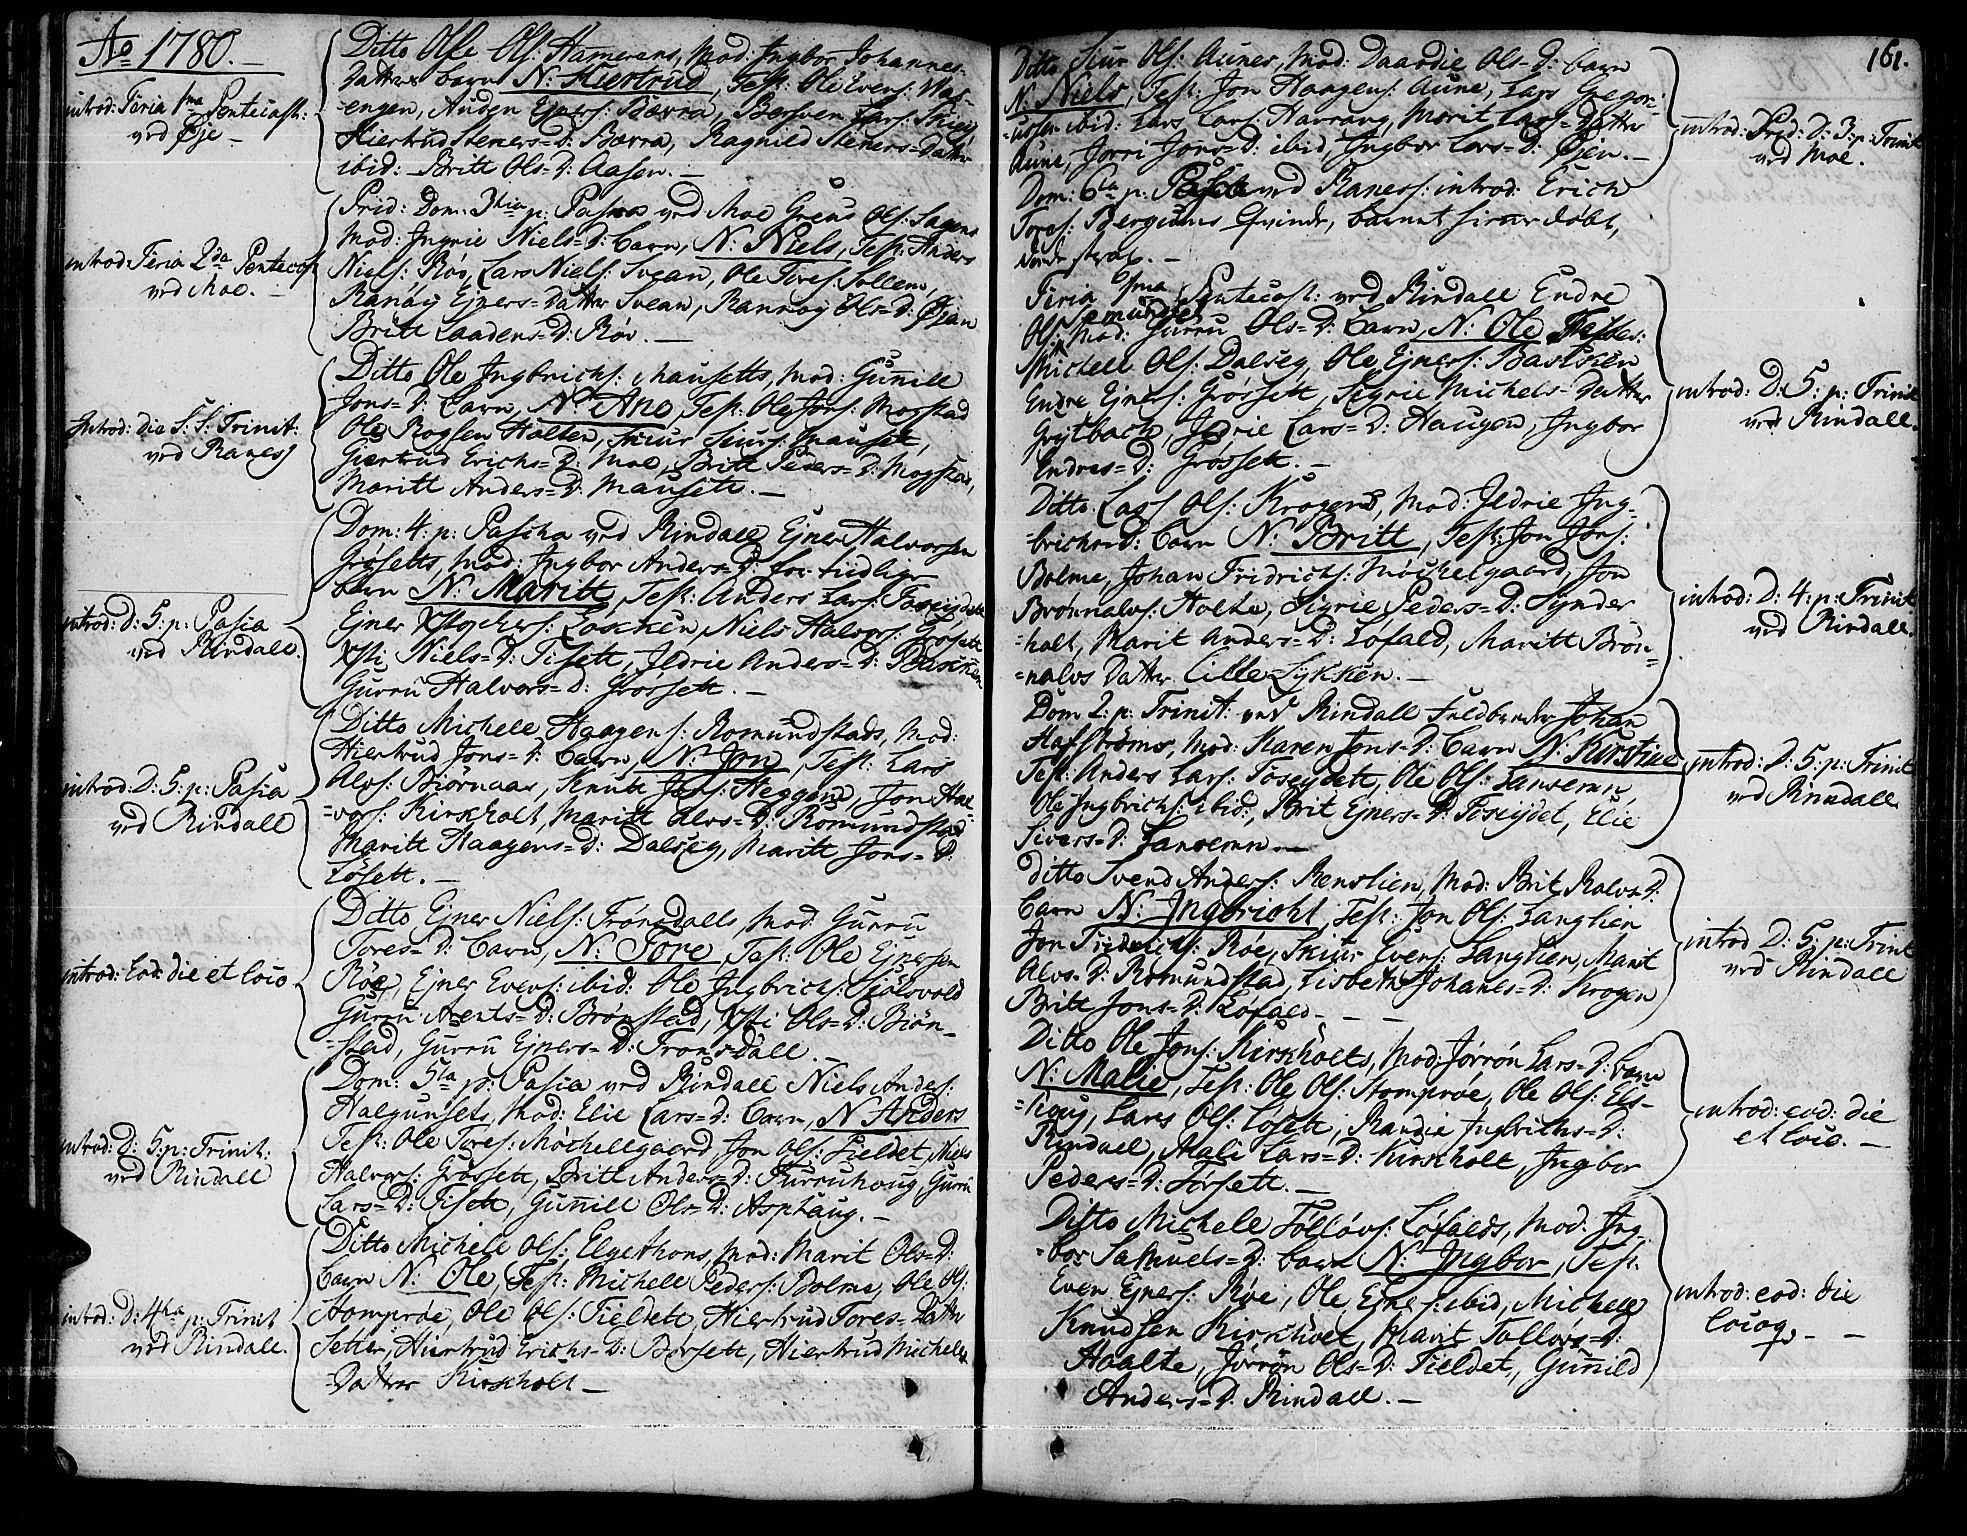 Ao 1780.
introd: Feria 1ma Pentecost:
ved Øje
Ditto Ole Ols: Hamerens, Mod: Ingbor Johannes-
Datter barn N: Hiertrud, Test: Ole Evens: Was-
engen, Auden Ejners: Bævra, Bersven Lars: Skiei
Hiertrud Steners=D: Bævra, Ragnild Steners=Datter
ibid: Britt Ols=D: Aasen.
introd: Feria 2da Pentecost
ved Moe.
Frid: Dom: 3tia p: Pascha ved Moe Ols: Sagens
Mod: Ingrie Niels=D: barn, N: Niels, Test: Anders
Niels: Røv, Lars Niels: Svean, Ole Tores: Sollem,
Ranøg Ejners=Datter Svean, Rannøg Ols=D: Øjan
Britt Laadens=D: Røv.
Introd: die S: S: Trinit:
ved Ranes
Ditto Ole Ingbrichs: Mausetts, Mod: Gunnild
Jons=D: barn, N: Ane, Test: Ole Jørs: Mogstad
Ole Rogsen Halten, Siur Siurs: Mauset,
Giertrud Erichs=D: Moe, Britt Peders=D: Mogstad,
Maritt Anders=D: Mausett.
introd: D: 5: p: Pasca
ved Rindall.
Dom: 4: p: Pascha ved Rindall Ejner Halvorsen
Grøsetts, Mod: Ingbor Anders=D: for tiidlig
barn N: Maritt, Test: Anders Lars: Foseydet
Ejner Xstophers: Løcken, Niels Halvors: Grøsett
Xsti Niels=D: Tisett, Ildrie Anders=D: Bascken
Gurru Halvors=D: Grøsett.
introd: D: 5: p: Pasca
ved Rindall
Ditto Michell Haagens: Romundstads, Mod:
Hiertrud Jons=D: barn, N: Jon, Test: Lars
Alvs: Biørnaas, Knut Heggem, Jon Hal-
=vors: Kirkholt, Maritt Alvs=D: Romundstad
Maritt Haagens=D: Dalseg, Maritt Jons=D:
Løsett.
introd: Eod: die et loco
Ditto Ejner Niels: Trønsdalls, Mod: Gurru
Tores=D: barn, N: Tore, Test: Ole Ejnersen
Røe, Ejner Evens: ibid: Ole Ingbrichs: Siølsvold
Gurru Arents=D: Brønstad, Xsti Ols=D: Biøn-
=stad, Gurru Ejners=D: Tronsdall.
introd: D: 5: p: Trinit:
ved Rindall
Dom: 5ta p: Pasca ved Rindall Niels Anders:
Halgunsets, Mod: Elie Lars=D: barn, N Anders
Test: Ole Tores: Møchellgaard, Jon Ols: Fieldet, Niels
Halvors: Grøsett, Britt Anders=D: Furruhoug, Gurru
Lars=D: Tisett, Gunnill Ols=D: Asphaug.
introd: D: 4ta p: Trinit
ved Rindall.
Ditto Michell Ols: Elgethons, Mod: Marit Ols=D:
barn N: Ole, Test: Michell Peders: Bolme, Ole Ols:
Stomprøe, Ole Ols: Fieldett, Hiertrud Tores=Datter
Setter, Hiertrud Erichs=D: Børsett, Hiertrud Michels
Datter Kirkholt
161.
Ditto Siur Ols: Aunes, Mod: Daardie Ols=D: barn
N: Niels, Test: Jon Haagens: Aune, Lars Gregori-
=ussen ibid: Lars Lars: Havrang, Marit Lars=Datter
Aune, Jorri Jons=D: ibid, Ingbor Lars=D: Øjen.
introd: Frid: D: 3: p: Trinit
ved Moe.
Dom: 6ta p: Pascha ved Raness: introd: Erich
Tores: Bergums Qvinde, barnet døbt,
døde strax.
Feria 1ma Pentecost: ved Rindall Endre
Ols: Mod: Gurru Ols=D: barn, N: Ole
Michell Ols: Dalseg, Ole Ejners: Bascken
Endre Ejners: Grøsett, Sigrie Michels=Datter
Grytbach, Ildrie Lars=D: Haugen, Ingbor
Endres=D: Grøssett.
introd: D: 5: p: Trinit
ved Rindall.
Ditto Lars Ols: Krogens, Mod: Ildrie Ing-
=brichs D: barn N: Britt, Test: Jon Jons:
Bolme, Johan Fridrichs: Møchelgaard, Jon
Brønnalvs: Holte, Sigrie Peders=D: Synder
=halt, Marit Anders=D: Løfald, Maritt Brøn-
=nalvs Datter Lille Lykken.
introd: D: 4: p: Trinit
ved Rindall.
Dom 2: p: Trinit: ved Rindall Johan
Hafstrøms, Mod: Karen Jons=D: barn N: Kirstine
Test: Anders Lars: Foseydet, Ole Ols: Landsemn
Ole Ingbrichs: ibid:, Brit Ejners=D: Foseydet, Elie
Sivers=D: Lansemn
introd: D: 5: p: Trinit
ved Rindall
Ditto Svend Anders: Renslien, Mod: Brit Ralvs D:
barn N: Ingbricht, Test: Jon Ols: Langlien
Jon Fridrichs: Røe, Skiur Evens: Langlien, Marit
Alvs=D: Romundstad, Lisbeth Johanes=D: Krogen
Britt Jons=D: Løfald.
introd D: 5: p: Trinit
ved Rindall
Ditto Ole Jons: Kirkholts, Mod: Jørrøn Lars=D: barn
N: Malie, Test: Ole Ols: Stomprøe, Ole Ols: Els-
=houg, Lars Ols: Løsett, Randie Ingbrichs=D:
Rindall, Mali Lars=D: Kirkholt, Ingbor
Peders=D: Torsett.
introd: eod: die
et loco.
Ditto Michell Tølløvs: Løfalds, Mod: Ing-
=bor Samuels=D: barn N: Ingbor, Test:
Even Ejners: Røe, Ole Ejners: ibid, Michell
Knudsen Kirkholt, Marit Tølløvs=D:
Haalte, Jørrøn Ols=D: Fieldet, Gunnild
Anders=D: Rindall.
introd: eod: die
locoq